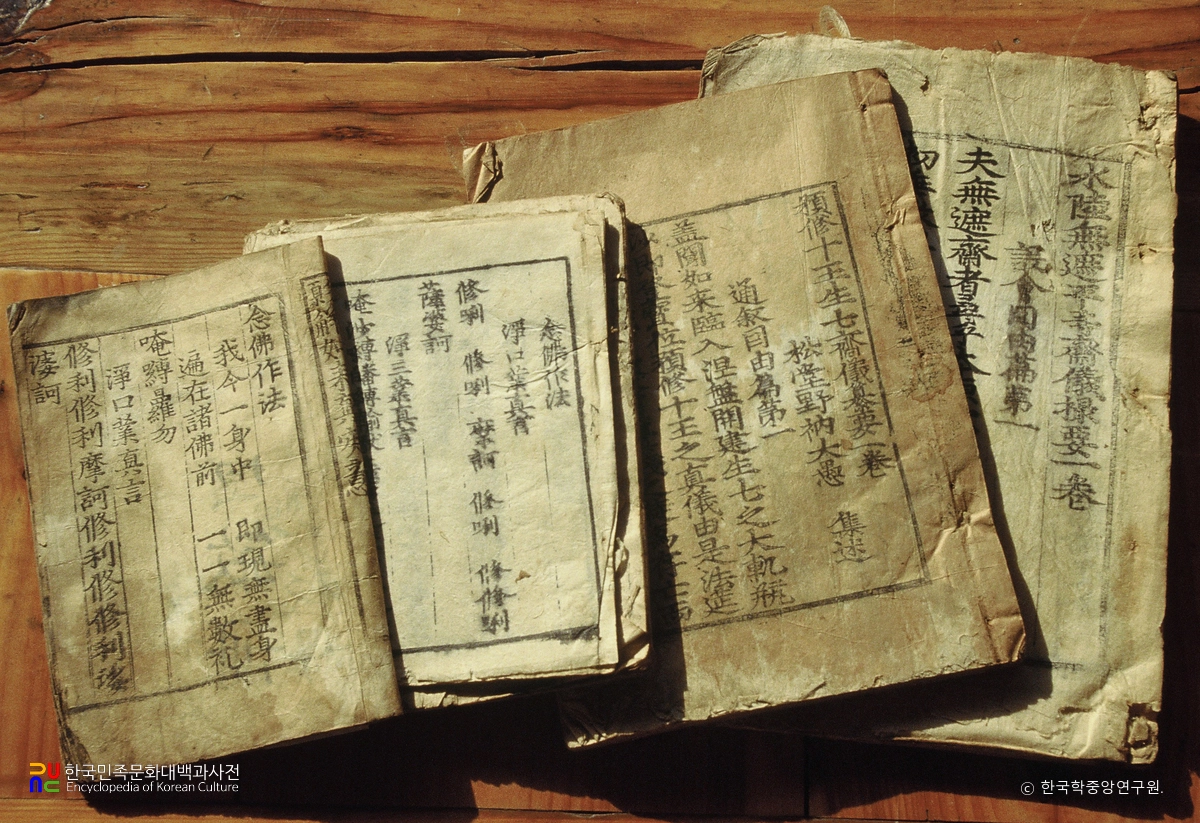 水陸無遮平等齋儀撮要一卷
設會因由篇第一
夫無遮齋者
預修十王生七齋儀纂要一卷
松堂野衲大愚 集述
通敘因由篇第一
盖聞如來臨入涅盤開建生七之大軌
預修十王之真儀由是法
念佛作法
淨口業真言
修唎 修唎 摩訶 修唎 修修唎
薩婆訶
淨三業真言
念佛作法
我今一身中 即現無盡身
遍在諸佛前 一一無數礼
唵嚩羅勿
淨口業真言
修利修利摩訶修利修修利
婆訶
한국민족문화대백과사전
Encyclopedia of Korean Culture
ⓒ 한국학중앙연구원.